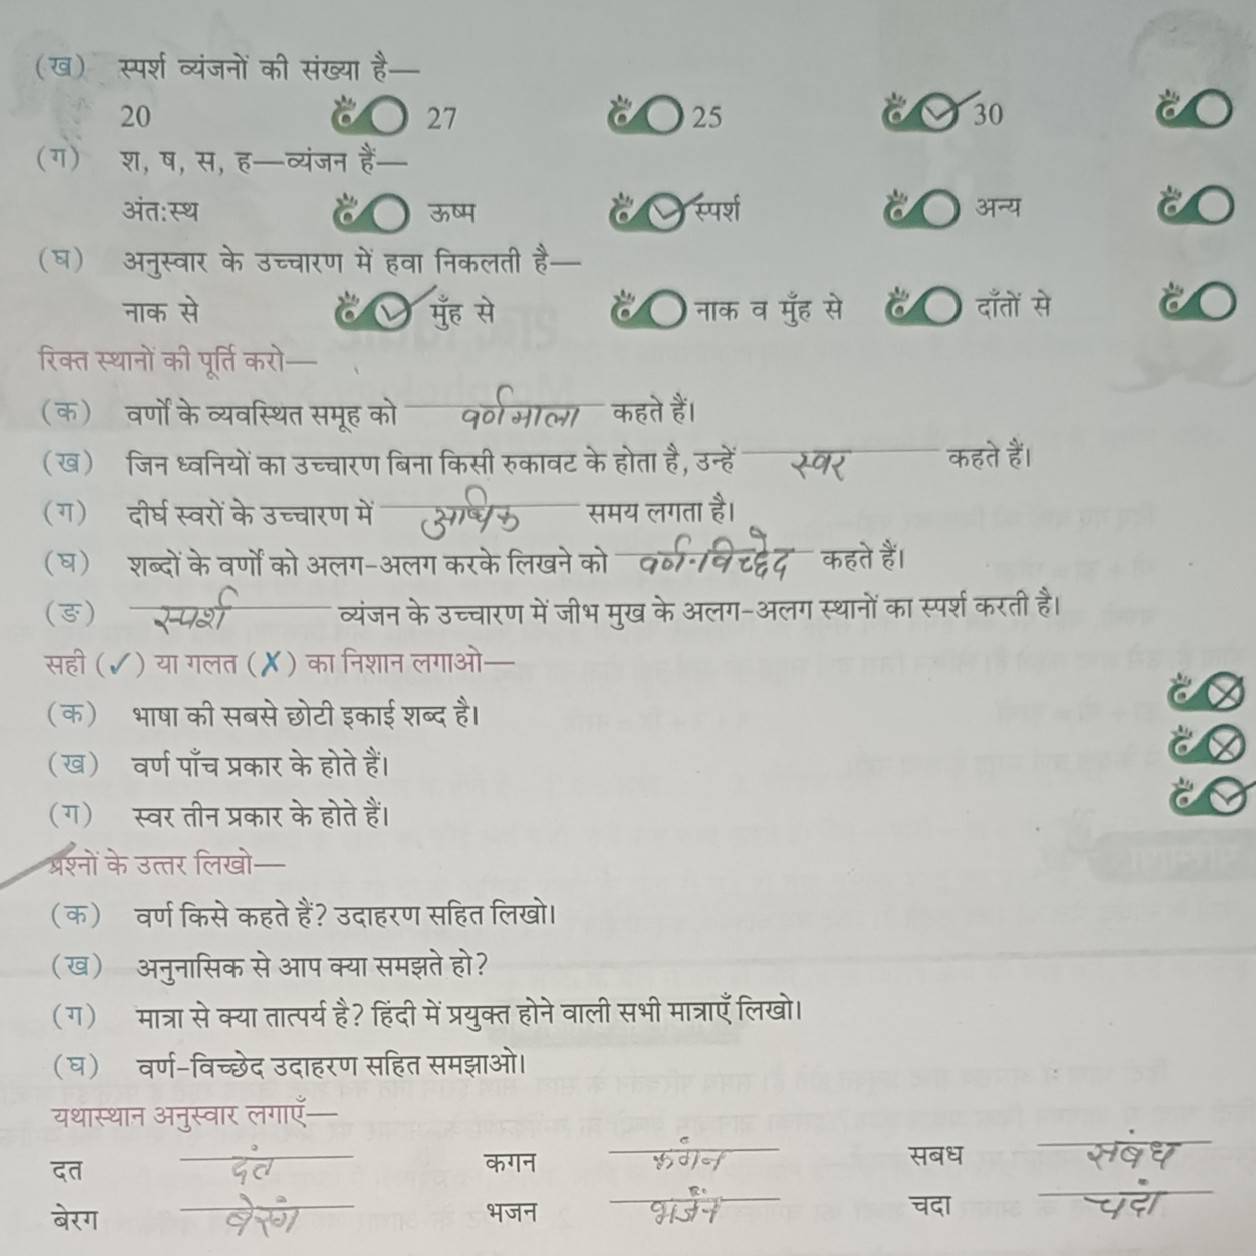 (ख) स्पर्श व्यंजनों की संख्या है—
20 27 25 30
(ग) श, ष, स, ह—व्यंजन हैं—
अंतःस्थ ऊष्म स्पर्श अन्य
(घ) अनुस्वार के उच्चारण में हवा निकलती है—
नाक से मुँह से नाक व मुँह से दाँतों से
रिक्त स्थानों की पूर्ति करो—
(क) वर्णों के व्यवस्थित समूह को वर्णमाला कहते हैं।
(ख) जिन ध्वनियों का उच्चारण बिना किसी रुकावट के होता है, उन्हें स्वर कहते हैं।
(ग) दीर्घ स्वरों के उच्चारण में अधिक समय लगता है।
(घ) शब्दों के वर्णों को अलग-अलग करके लिखने को वर्ण-विच्छेद कहते हैं।
(ङ) स्पर्श व्यंजन के उच्चारण में जीभ मुख के अलग-अलग स्थानों का स्पर्श करती है।
सही (✓) या गलत (✗) का निशान लगाओ—
(क) भाषा की सबसे छोटी इकाई शब्द है।
(ख) वर्ण पाँच प्रकार के होते हैं।
(ग) स्वर तीन प्रकार के होते हैं।
प्रश्नों के उत्तर लिखो—
(क) वर्ण किसे कहते हैं? उदाहरण सहित लिखो।
(ख) अनुनासिक से आप क्या समझते हो?
(ग) मात्रा से क्या तात्पर्य है? हिंदी में प्रयुक्त होने वाली सभी मात्राएँ लिखो।
(घ) वर्ण-विच्छेद उदाहरण सहित समझाओ।
यथास्थान अनुस्वार लगाएँ—
दत दंत कगन कंगन सबध संबंध
बेरग बेरंग भजन भंजन चदा चंदा